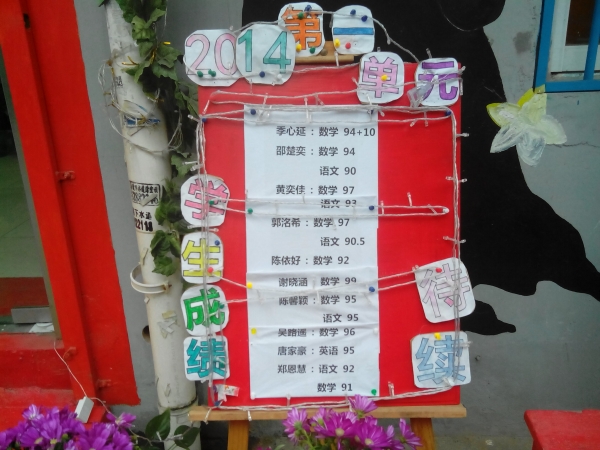 2014
第二
单元
学生成绩
待续
李心延：数学 94+10
邵楚奕：数学 94
语文 90
黄奕佳：数学 97
语文 93
郭洺希：数学 97
语文 90.5
陈依好：数学 92
谢晓涵 数学 99
陈馨颖：数学 95
语文 95
数学 96
唐家豪：英语 95
郑恩慧：语文 92
数学 91